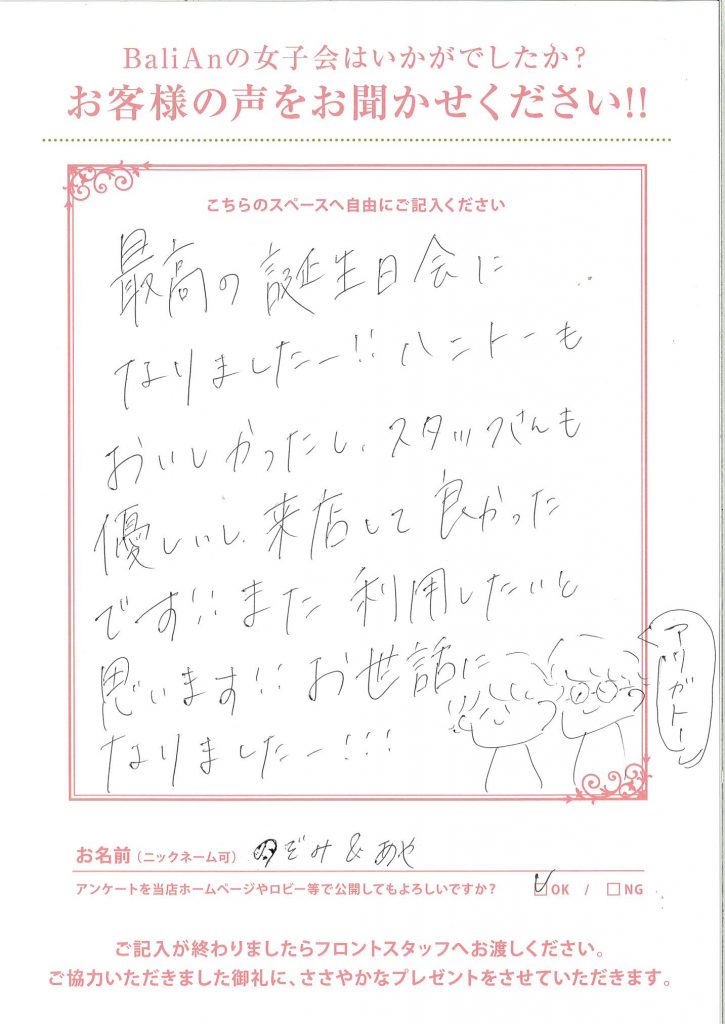 BaliAnの女子会はいかがでしたか?
お客様の声をお聞かせください!!
こちらのスペースへ自由にご記入ください
最高の誕生日会に
なりましたー!! ハニトーも
おいしかったし、スタッフさんも
優しいし、来店して良かった
です!! また利用したいと
思います!! お世話に
なりましたー!!!
アリガトー
お名前(ニックネーム可) のぞみ & あや
アンケートを当店ホームページやロビー等で公開してもよろしいですか? OK / NG
ご記入が終わりましたらフロントスタッフへお渡しください。
ご協力いただきました御礼に、ささやかなプレゼントをさせていただきます。